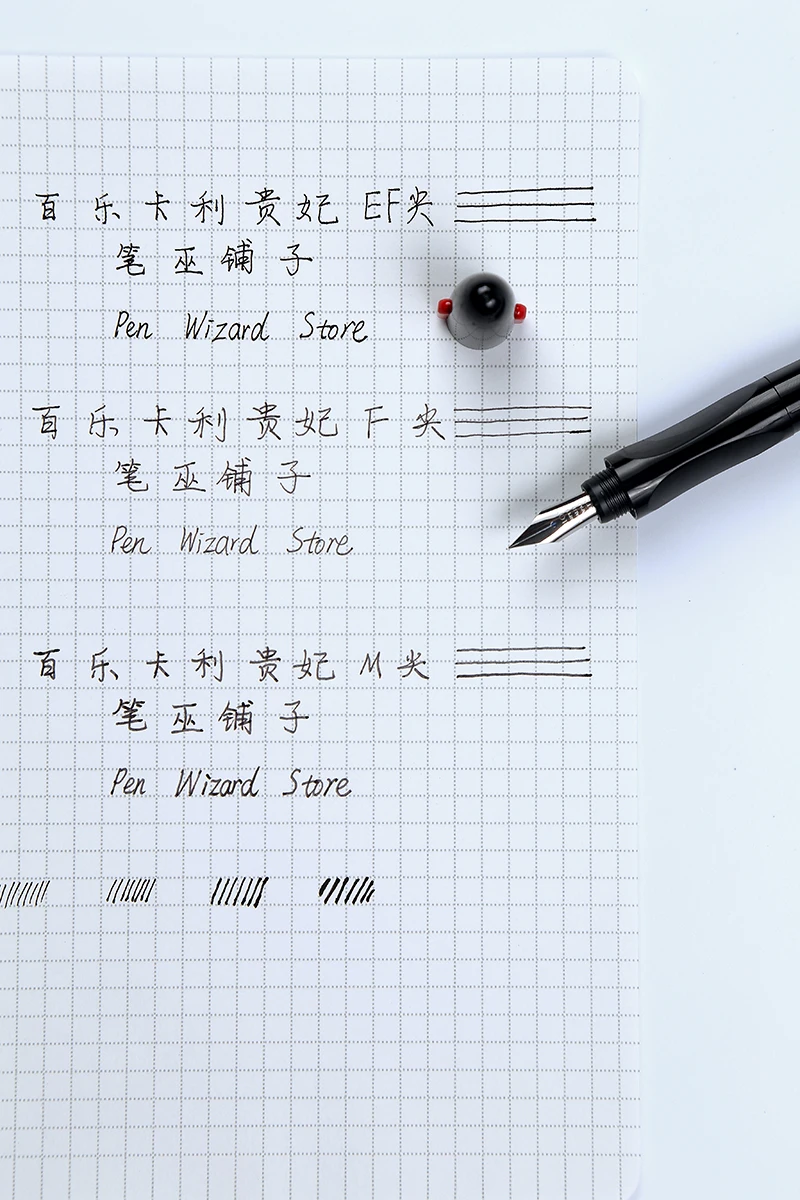 百乐卡利贵妃 EF尖
笔巫铺子
Pen Wizard Store
百乐卡利贵妃 F 尖
笔巫铺子
Pen Wizard Store
百乐卡利贵妃 M 尖
笔巫铺子
Pen Wizard Store